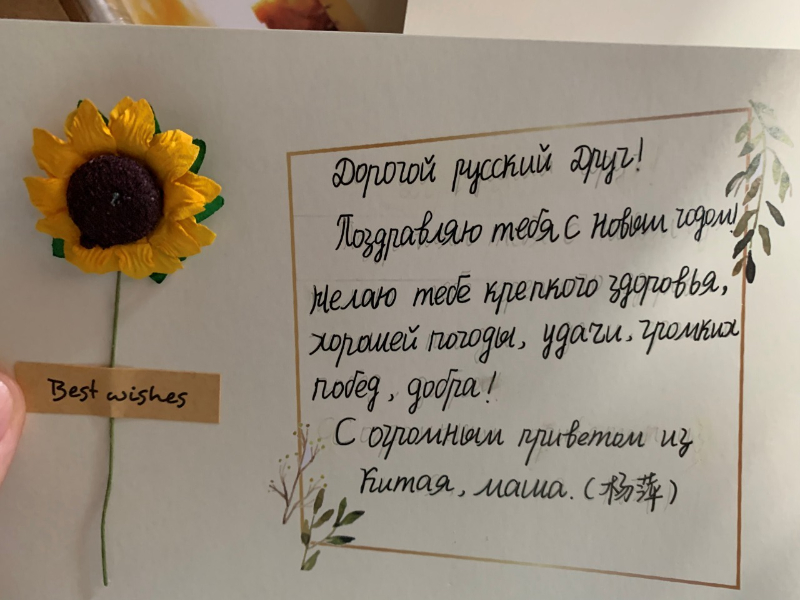 Best wishes
Дорогой русский Друг!
Поздравляю тебя с Новым годом!
Желаю тебе крепкого здоровья,
хорошей погоды, удачи, громких
побед, добра!
С огромным приветом из
Китая, маша. (杨萍)